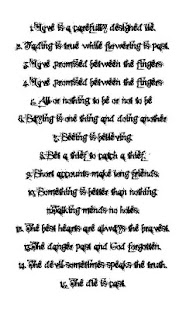 1.Love is a carefully designed lie.
2. Fading is true while flowering is past.
3.Love promised between the fingers
4.Love promised between the fingers
All or nothing to be or not to be
6.Saying is one thing and doing another
7.Seeing is believing.
8.Set a thief to catch a thief.
9.Short accounts make long friends.
10.Something is better than nothing.
11.Talking mends no holes.
12. The best hearts are always the bravest.
13.The danger past and God forgotten.
14. The devil sometimes speaks the truth.
15. The die is cast.